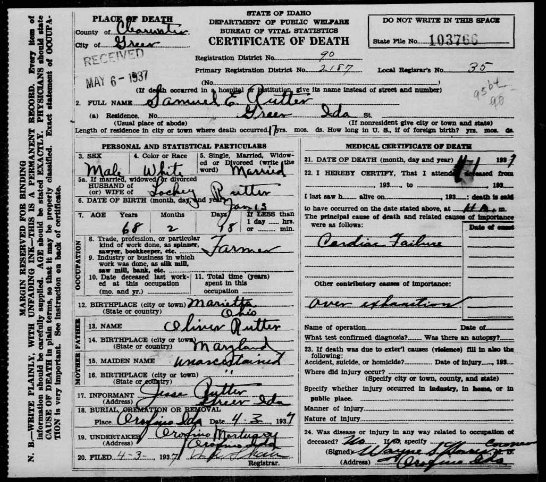 STATE OF IDAHO
DEPARTMENT OF PUBLIC WELFARE
BUREAU OF VITAL STATISTICS
CERTIFICATE OF DEATH
DO NOT WRITE IN THIS SPACE
State File No. 103766
PLACE OF DEATH
County of Clearwater
City of Greer
RECEIVED
MAY 6 - 1937
Registration District No. 90
Primary Registration District No. 2187 Local Registrar's No. 35
(No.
(If death occurred in a hospital or institution, give its name instead of street and number)
2. FULL NAME Samuel E. Rutter
(a) Residence. No. Greer Ida St.
(Usual place of abode) (If nonresident give city or town and state)
Length of residence in city or town where death occurred 17 yrs. mos. ds. How long in U. S., if of foreign birth? yrs. mos. ds.
PERSONAL AND STATISTICAL PARTICULARS
3. SEX 4. Color or Race 5. Single, Married, Widowed or Divorced (write the word)
Male White Married
5a. If married, widowed or divorced
HUSBAND of
(or) WIFE of Rutter
6. DATE OF BIRTH (month, day and year) Jan 15
7. AGE Years Months Days If LESS than 1 day hrs. or min.
68 2 18
OCCUPATION
8. Trade, profession, or particular kind of work done, as spinner, sawyer, bookkeeper, etc. Farmer
9. Industry or business in which work was done, as silk mill, saw mill, bank, etc.
10. Date deceased last worked at this occupation (mo. and yr.)
11. Total time (years) spent in this occupation
12. BIRTHPLACE (city or town) Marietta
(State or country) Ohio
MOTHER FATHER
13. NAME Oliver Rutter
14. BIRTHPLACE (city or town)
(State or country) Maryland
15. MAIDEN NAME unascertained
16. BIRTHPLACE (city or town) "
(State or country)
17. INFORMANT Jesse Rutter
(Address) Greer Ida
18. BURIAL, CREMATION OR REMOVAL
Place Orofino Ida Date 4-3 1937
19. UNDERTAKER Orofino Mortuary
(Address) Orofino Ida
20. FILED 4-3- 1937
Registrar.
MEDICAL CERTIFICATE OF DEATH
21. DATE OF DEATH (month, day and year) 1937
22. I HEREBY CERTIFY, That I attended deceased from
193 to 193
I last saw h alive on 193 ; death is said
to have occurred on the date stated above, at m.
The principal cause of death and related causes of importance were as follows: Date of onset
Cardiac Failure
Other contributory causes of importance:
Over exhaustion
Name of operation Date of
What test confirmed diagnosis? Was there an autopsy?
23. If death was due to exter'l causes (violence) fill in also the following:
Accident, suicide, or homicide? Date of injury 193
Where did injury occur?
(Specify city or town, county, and state)
Specify whether injury occurred in industry, in home, or in public place.
Manner of injury
Nature of injury
24. Was disease or injury in any way related to occupation of
deceased? No If so, specify
(Signed) Wayne Coroner
(Address) Orofino Ida
MARGIN RESERVED FOR BINDING
N. B.—WRITE PLAINLY, WITH UNFADING INK—THIS IS A PERMANENT RECORD. Every item of
information should be carefully supplied. AGE should be stated EXACTLY. PHYSICIANS should state
CAUSE OF DEATH in plain terms, so that it may be properly classified. Exact statement of OCCUPA-
TION is very important. See instruction on back of certificate.